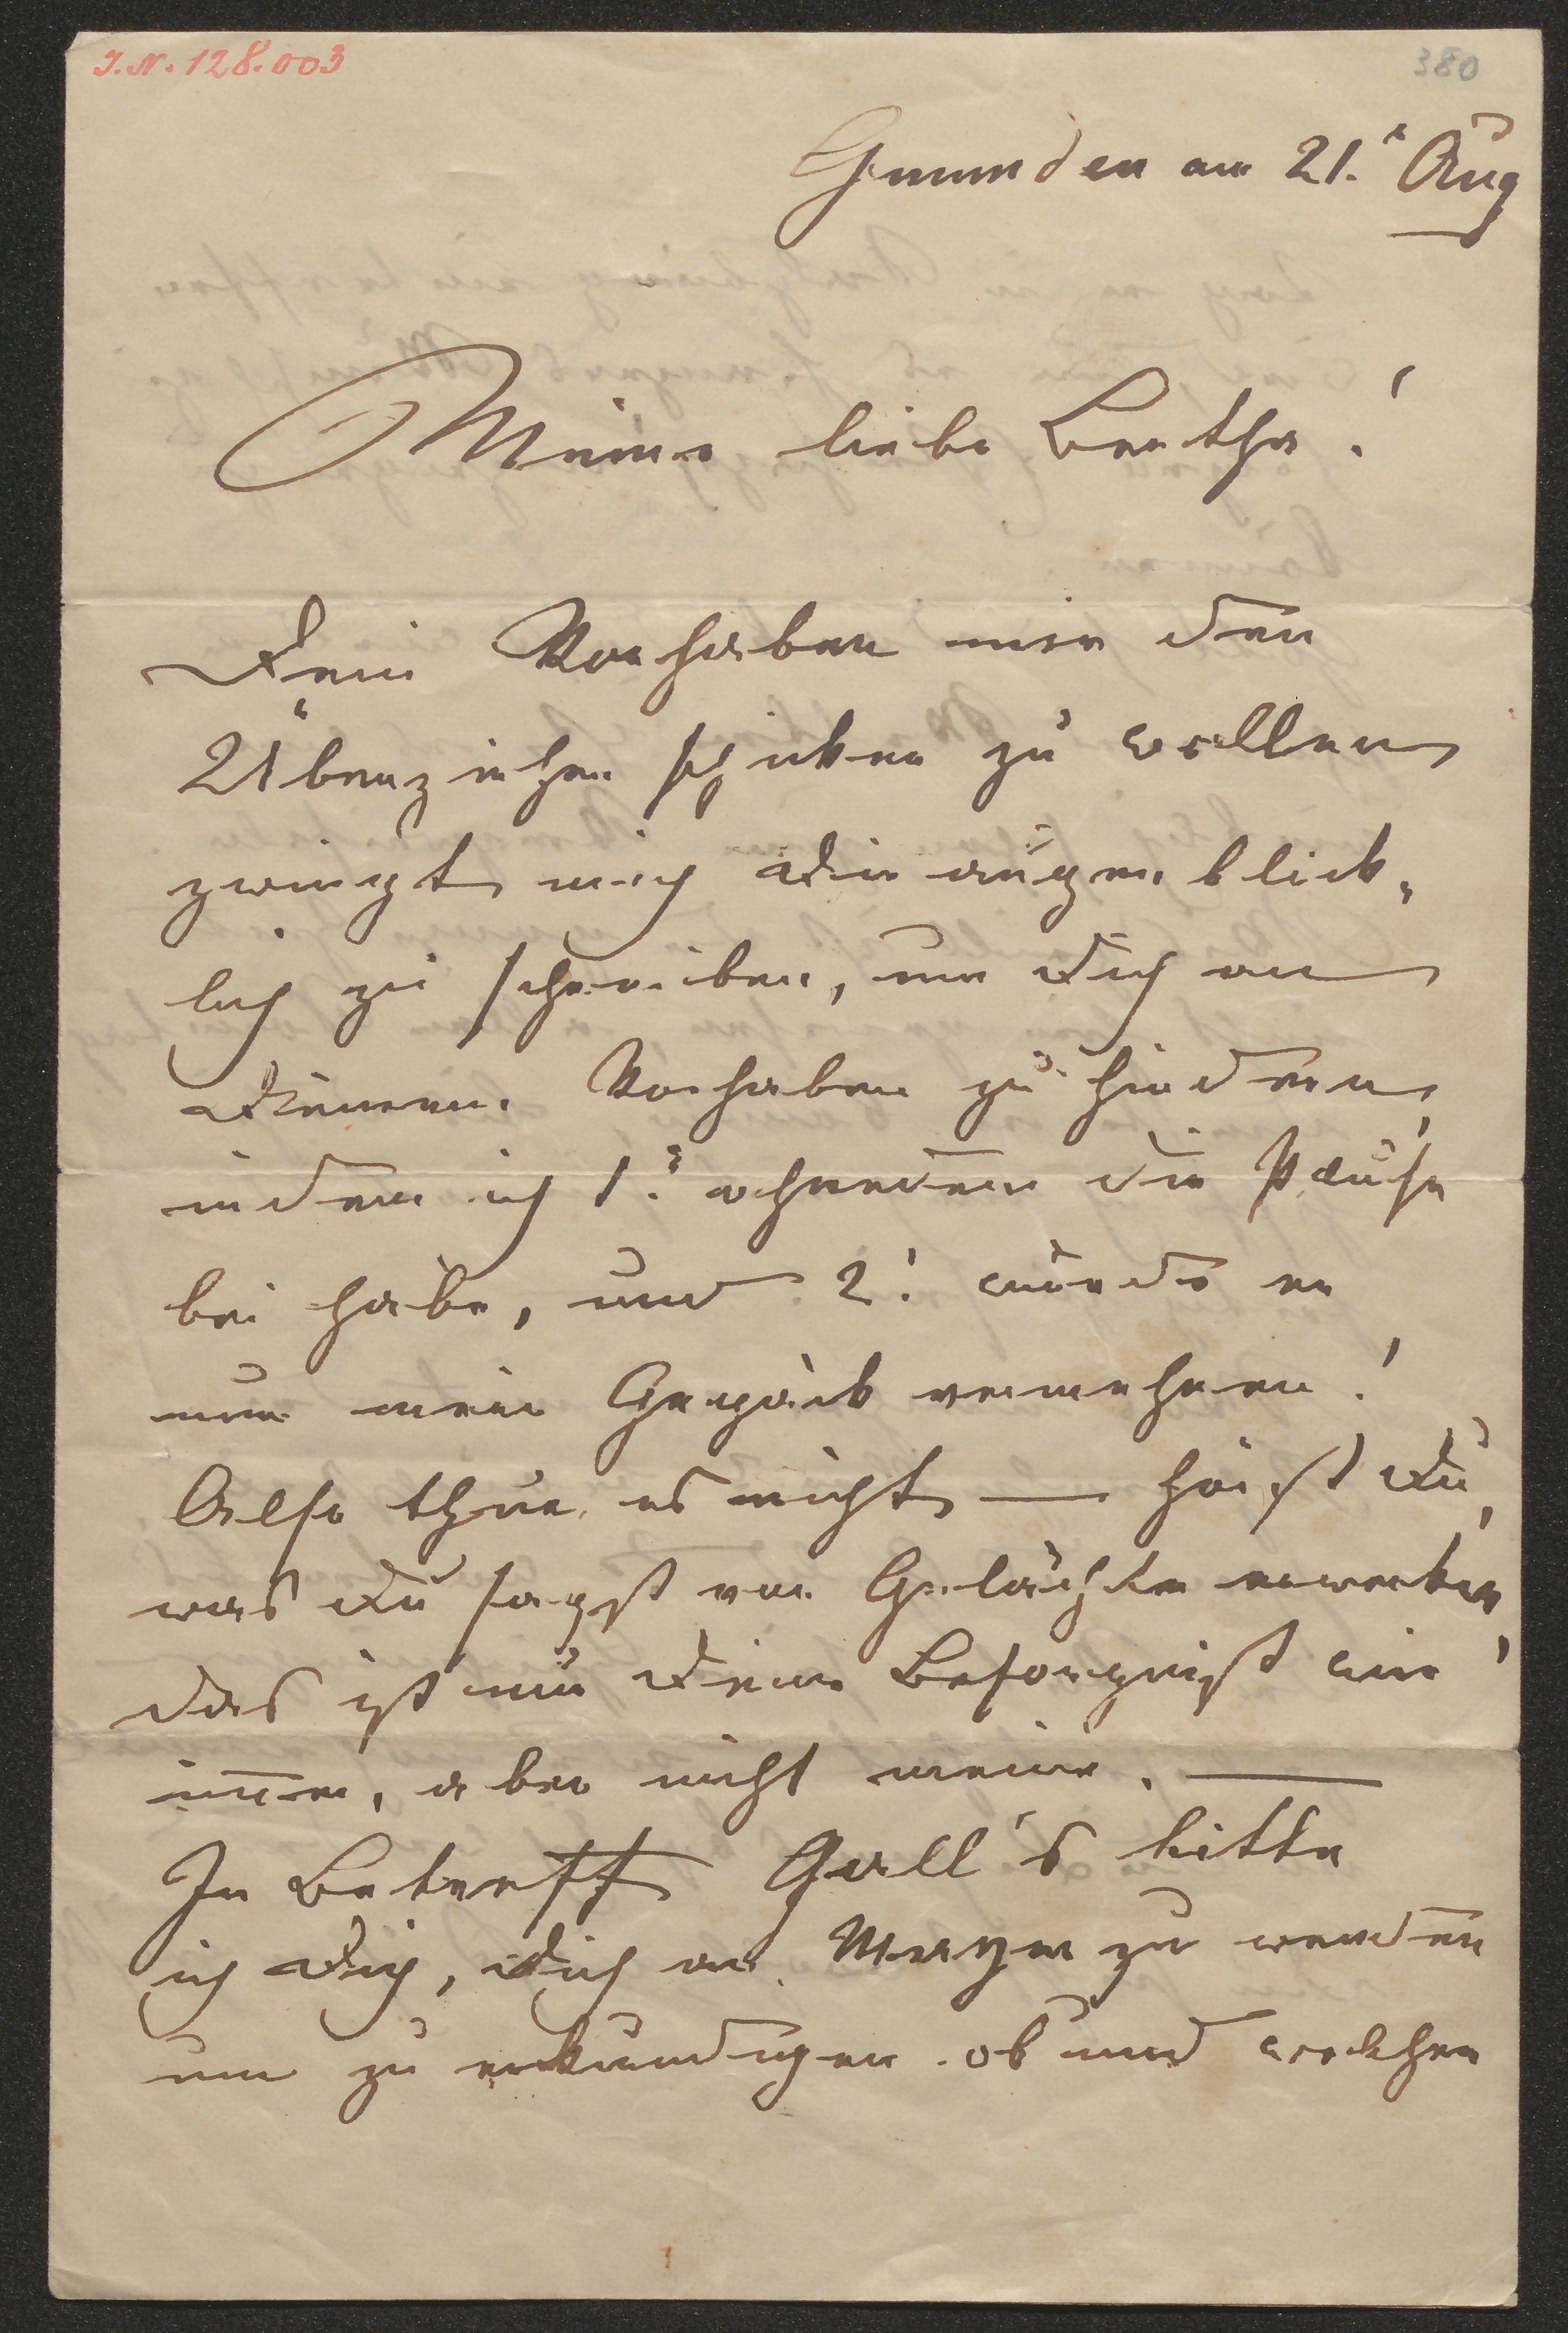 I.N. 128.003
380
Gmunden am 21. Aug
Meine liebe Bertha!
Dein Vorhaben mir den
Überzieher schicken zu wollen
zwingt mich Dir augenblick-
lich zu schreiben, um Dich an
Deinem Vorhaben zu hindern,
indem ich 1. ohnedem die
bei habe, und 2. würde er
nur mein Gepäck vermehren!
Also thue es nicht — hörst Du,
was Du sagst von Gelächter erwecken
das ist nur Deine Besorgniß wie
immer, aber nicht meine. —
In Betreff Gall's bitte
ich Dich, Dich an Mayer zu wenden
um zu erkundigen ob und welchen